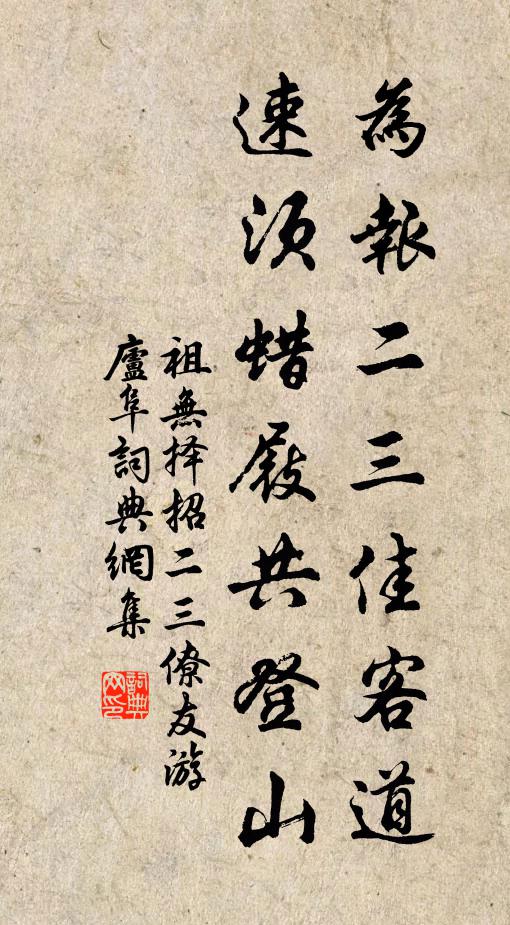 為報二三佳客道
速須蜡屐共登山
祖無择招二三僚友游
廬阜詞典網集
詞典
网印